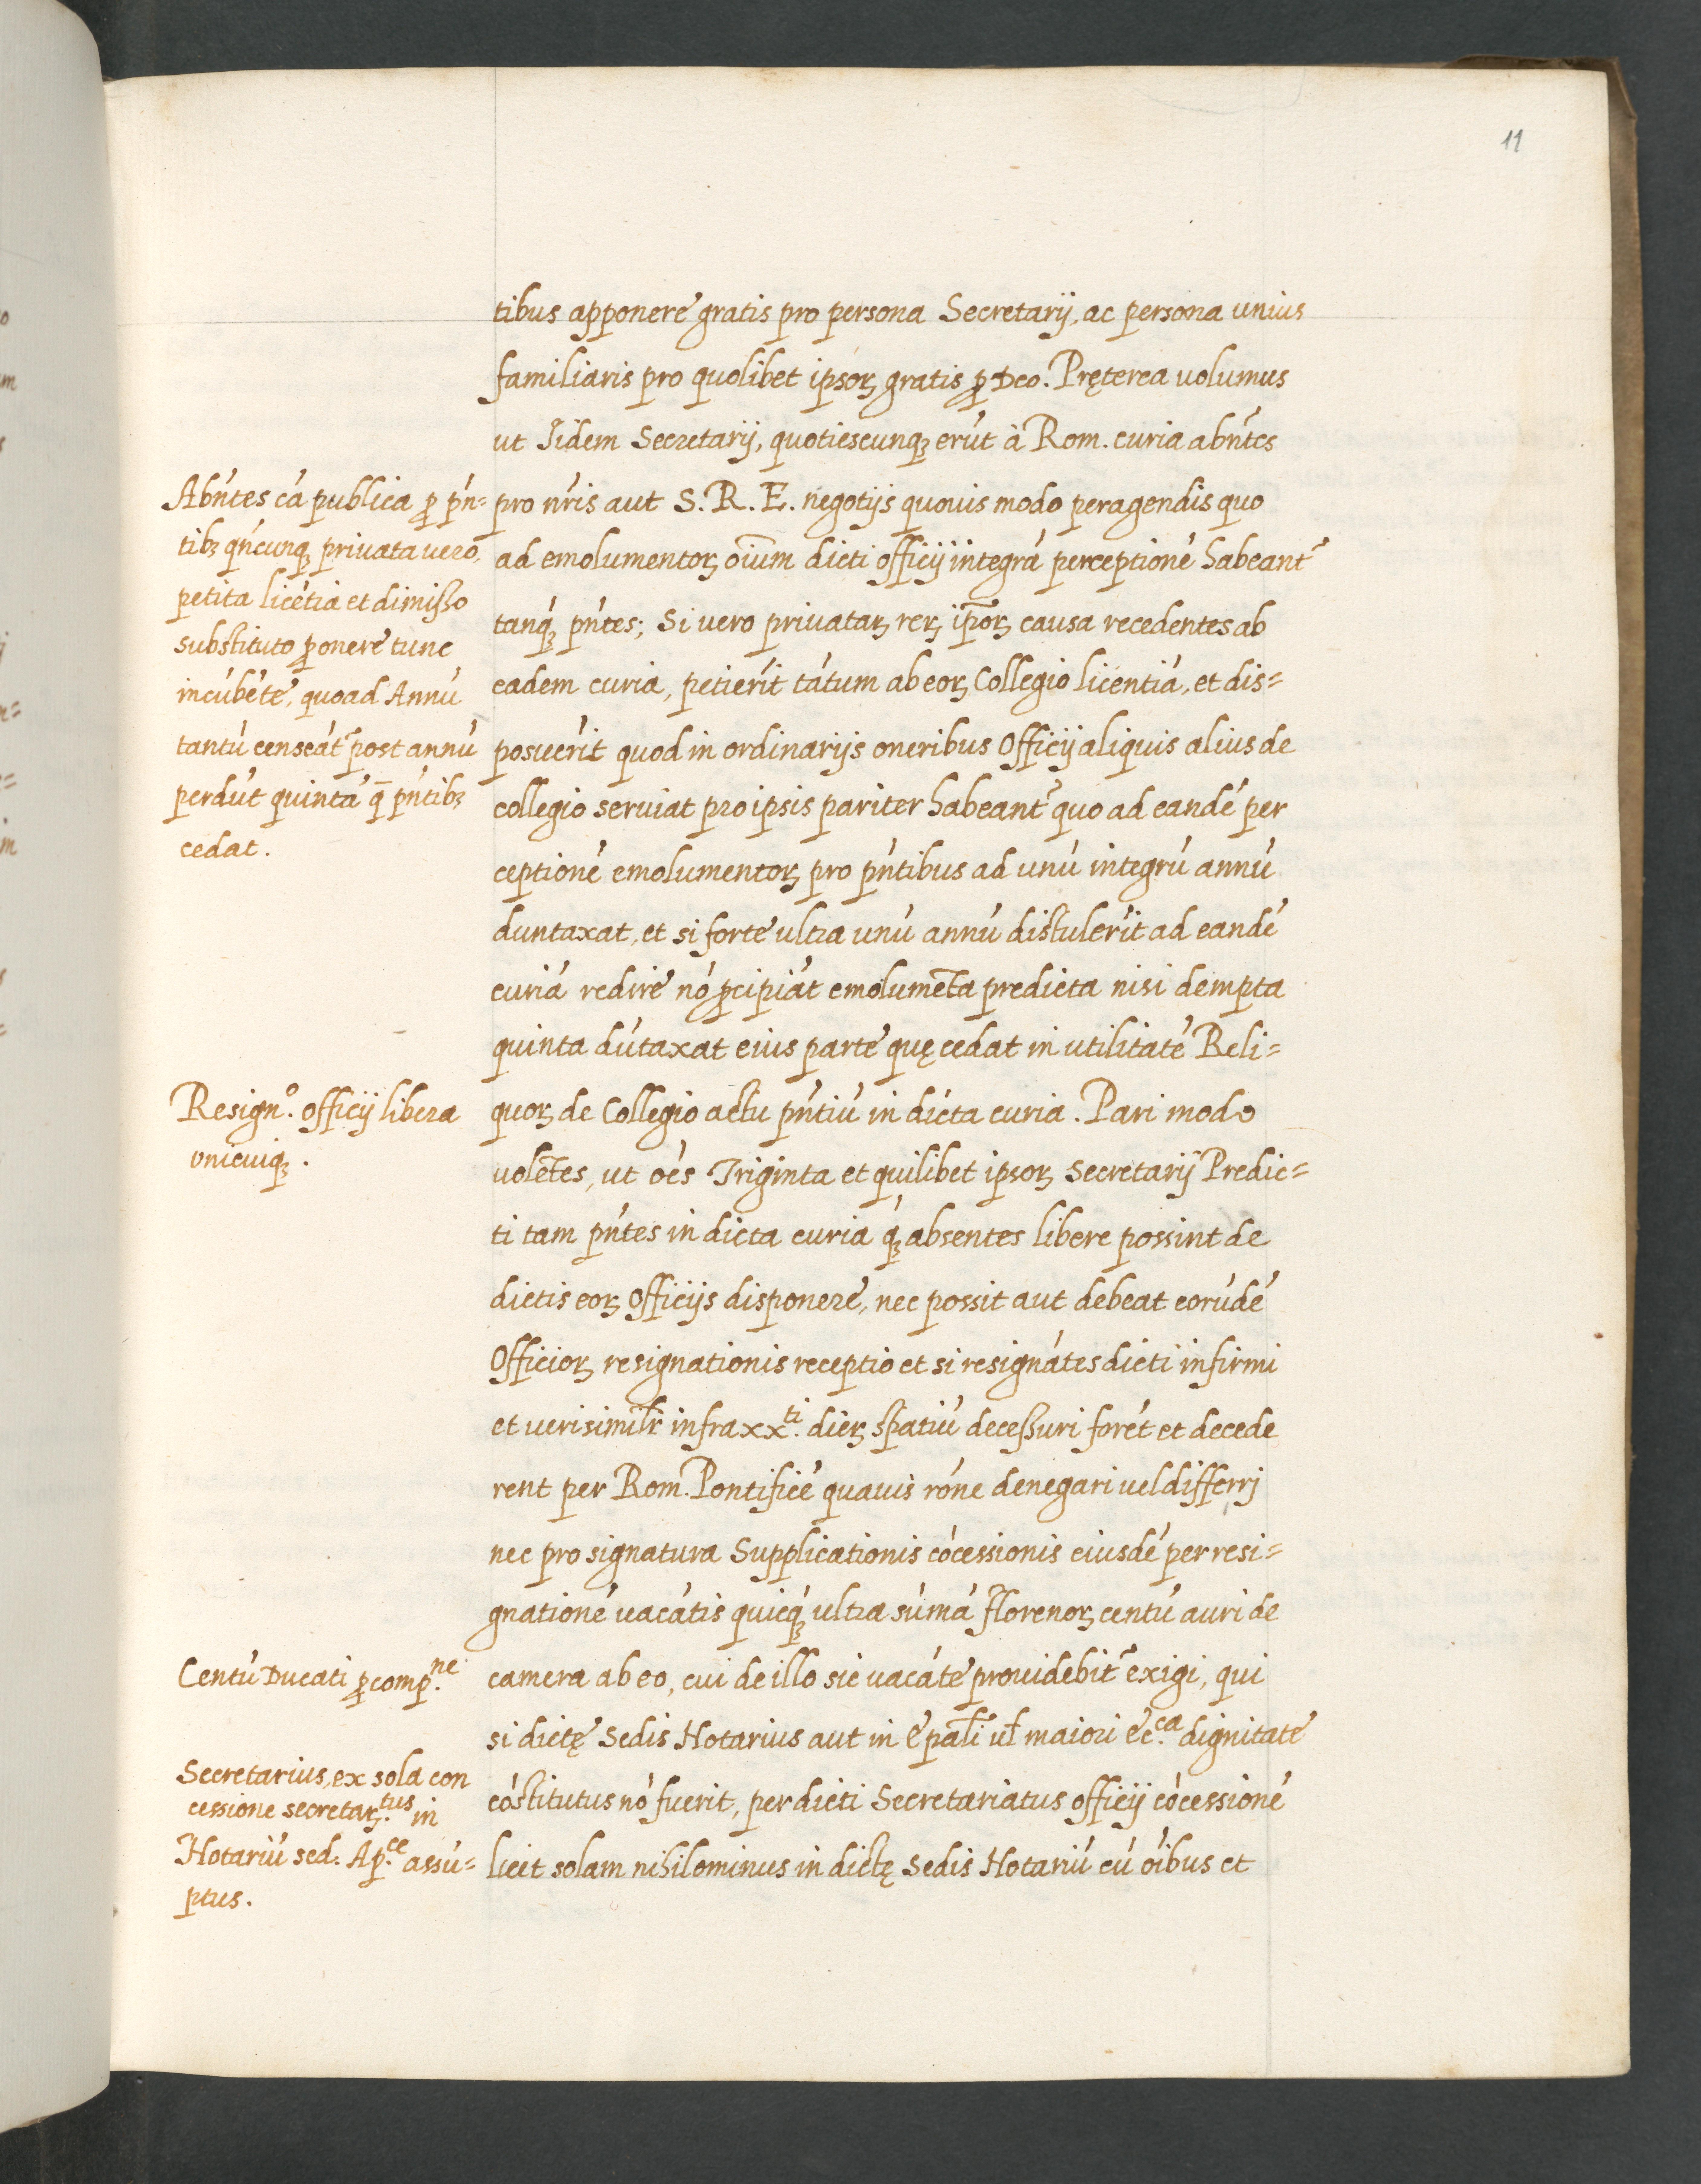 11
tibus apponere gratis pro persona Secretarij, ac persona unius
familiaris pro quolibet ipsoꝝ gratis ꝓ Deo. Pręterea volumus
ut Iidem Secretarij, quotiescunqꝫ erũt à Rom. curia abñtes
pro ñris aut S. R. E. negotijs quouis modo peragendis quo
ad emolumentoꝝ oĩum dicti officij integrã perceptionẽ habeant᷑
tanqꝫ̃ pñtes; Si vero privataꝝ reꝝ ip̃oꝝ causa recedentes ab
eadem curia, petierĩt tãtum ab eoꝝ Collegio licentiã, et dis=
posuerĩt quod in ordinarijs oneribus Officij aliquis alius de
collegio serviat pro ipsis pariter habeant᷑ quo ad eandẽ per
ceptionẽ emolumentoꝝ pro pñtibus ad unũ integrũ annũ
duntaxat, et si forte ultra unũ annũ distulerĩt ad eandẽ
curiã redire nõ ꝑcipiãt emolumẽta predicta nisi dempta
quinta dũtaxat eius parte quę cedat in utilitatẽ Reli=
quoꝝ de Collegio actu pñtiũ in dicta curia. Pari modo
volẽtes, ut oẽs Triginta et quilibet ipsoꝝ Secretarij Predic=
ti tam pñtes in dicta curia qꝫ̃ absentes libere possint de
dictis eoꝝ Officijs disponere, nec possit aut debeat eorũdẽ
Officioꝝ resignationis receptio et si resignãtes dicti infirmi
et verisimilr̃ infra xx.ti dieꝝ spatiũ decessuri forẽt et decede
rent per Rom. Pontificẽ quavis rõne denegari vel differrj
nec pro signatura Supplicationis cõcessionis eiusdẽ per resi=
gnationẽ vacãtis quicqꝫ̃ ultra sũmã Florenoꝝ centũ auri de
camera ab eo, cui de illo sic vacãte providebit᷑ exigi, qui
si dictę Sedis Notarius aut in ep̃ali vl̃ maiori ec.ca dignitate
cõstitutus nõ fuerit, per dicti Secretariatus officij cõcessionẽ
licet solam nihilominus in dictę Sedis Notariũ cũ õibus et
Abñtes cã publica ꝓ pñ=
tibꝫ qñcunqꝫ privata vero,
petita licẽtia et dimisso
substituto ꝓ onere tunc
incũbẽte, quoad Annũ
tantũ censeãt᷑ post annũ
perdũt quintã q̃ pñtibꝫ
cedat.
Resign.o officij libera
vnicuiqꝫ.
Centũ Ducati ꝓ comp.ne
Secretarius, ex sola con
cessione secretar.tus in
Notariũ sed. Ap.ce assũ=
ptus.